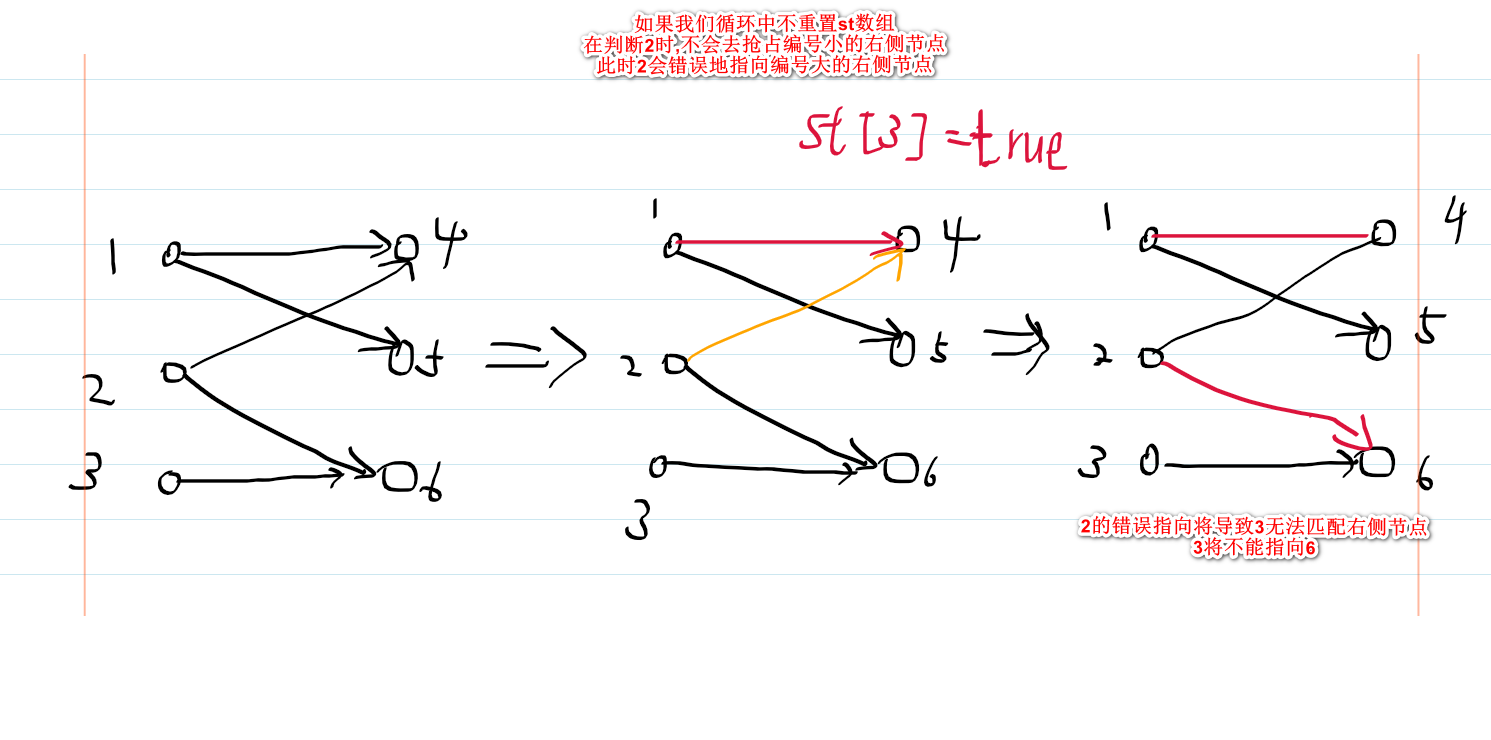 如果我们循环中不重置st数组
在判断2时,不会去抢占编号小的右侧节点
此时2会错误地指向编号大的右侧节点
st[3]=true
1 4
5
2
3 6
1 4
2 5
6
3
1 4
5
2
3 6
2的错误指向将导致3无法匹配右侧节点
3将不能指向6